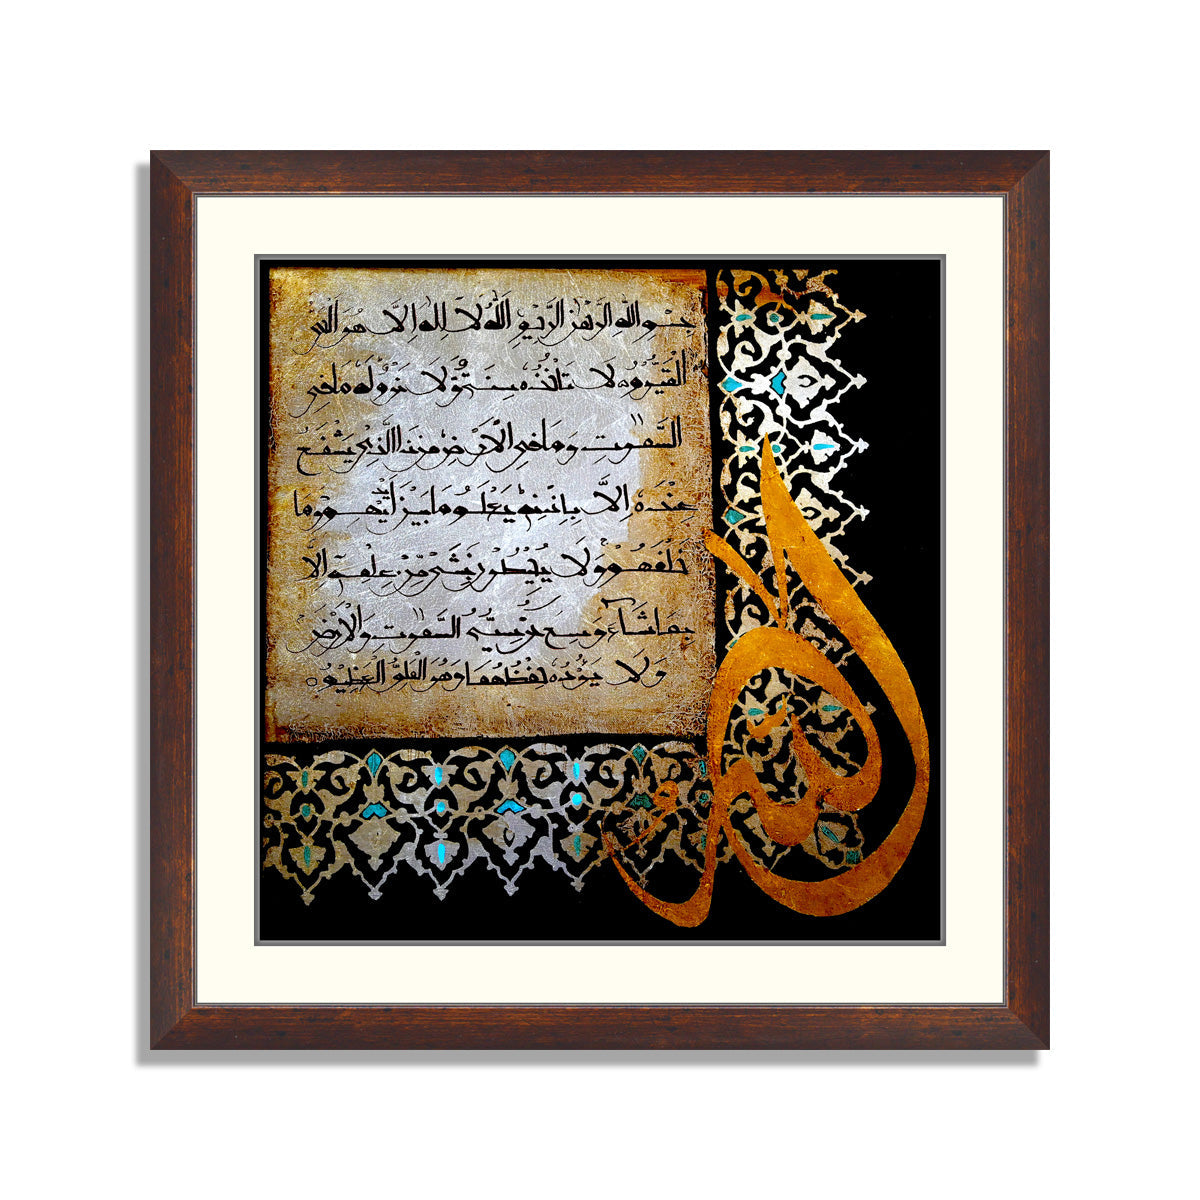 بسم الله الرحمن الرحيم الله لا اله الا هو الحي
القيوم لا تأخذه سنة ولا نوم له ما في
السموت وما في الارض من ذا الذي يشفع
عنده الا باذنه يعلم ما بين ايديهم وما
خلفهم ولا يحيطون بشيء من علمه الا
بما شاء وسع كرسيه السموت والارض
ولا يؤده حفظهما وهو العلي العظيم
الله